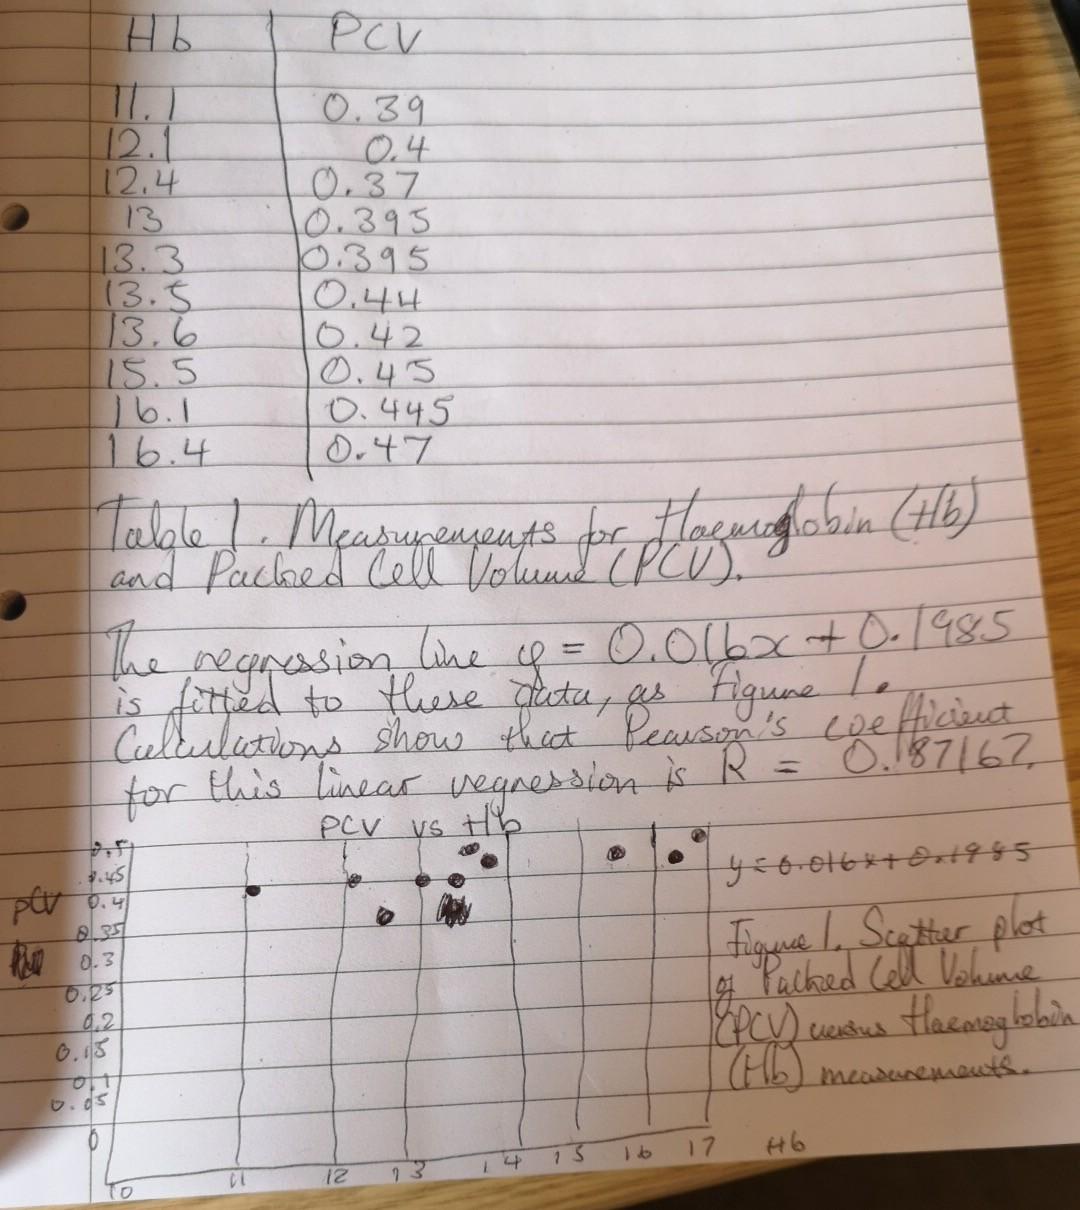 Hb PCV
11.1 0.39
12.1 0.4
12.4 0.37
13 0.395
13.3 0.395
13.5 0.44
13.6 0.42
15.5 0.45
16.1 0.445
16.4 0.47
Table 1. Measurements for Haemoglobin (Hb)
and Packed Cell Volume (PCV).
The regression line y = 0.016x + 0.1985
is fitted to these data, as Figure 1.
Calculations show that Pearson's coefficient
for this linear regression is R = 0.87167.
PCV vs Hb
0.5
0.45
0.4
PCV
0.35
0.3
0.25
0.2
0.15
0.1
0.05
0
10 11 12 13 14 15 16 17 Hb
y = 0.016x + 0.1985
Figure 1. Scatter plot
of Packed Cell Volume
(PCV) versus Haemoglobin
(Hb) measurements.